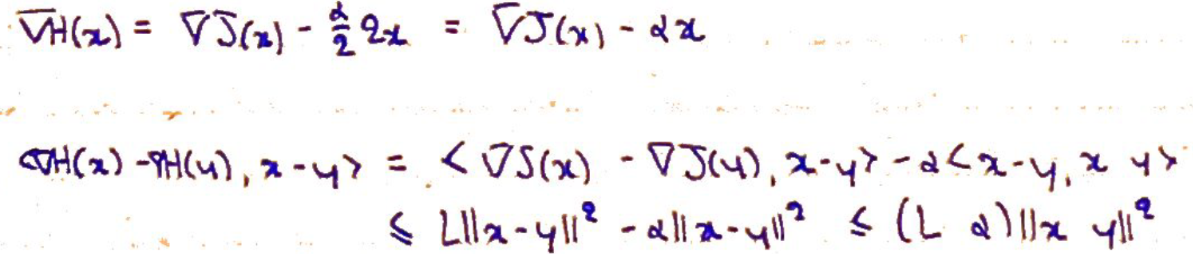 ∇H(x) = ∇J(x) - α/2 2x = ∇J(x) - αx
<∇H(x) - ∇H(y), x-y> = <∇J(x) - ∇J(y), x-y> - α<x-y, x y>
≤ L||x-y||² - α||x-y||² ≤ (L α)||x y||²